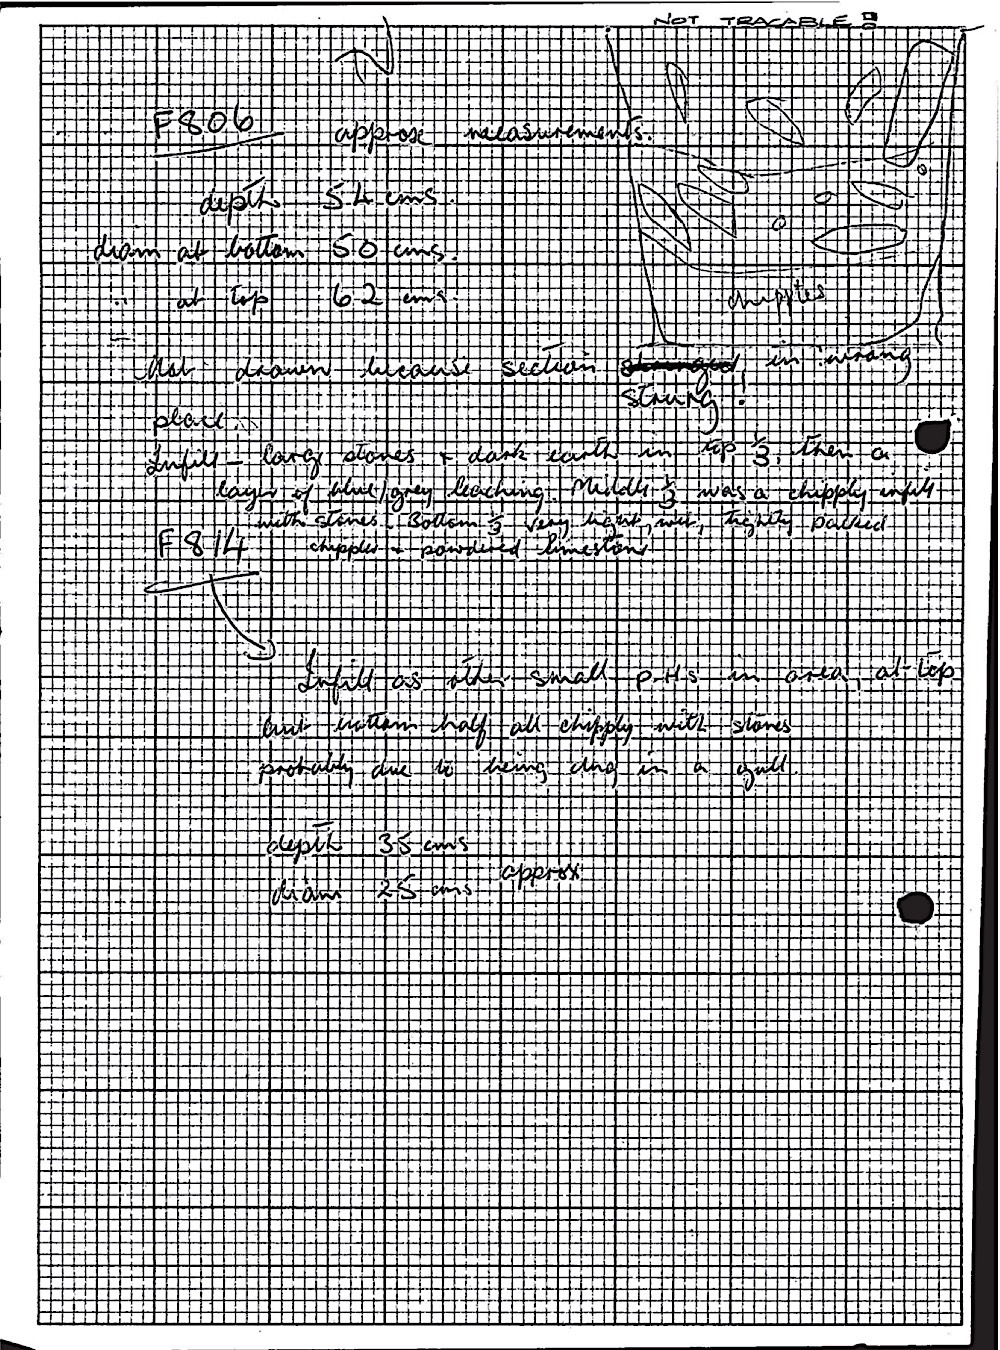 NOT TRACABLE
F806 approx measurements.
depth 54 cms.
diam at bottom 50 cms.
" at top 62 cms.
chipples
Not drawn because section strung! in wrong
place.
Infill - large stones + dark earth in top 1/3, then a
layer of blue/grey leaching. Middle 1/3 was a chipply infill
with stones. Bottom 1/3 very light, wet, tightly packed
chipples + powdered limestone
F814
Infill as other small p.Hs in area, at top
but bottom half all chipply with stones
probably due to being dug in a gull.
depth 35 cms
diam 25 cms approx